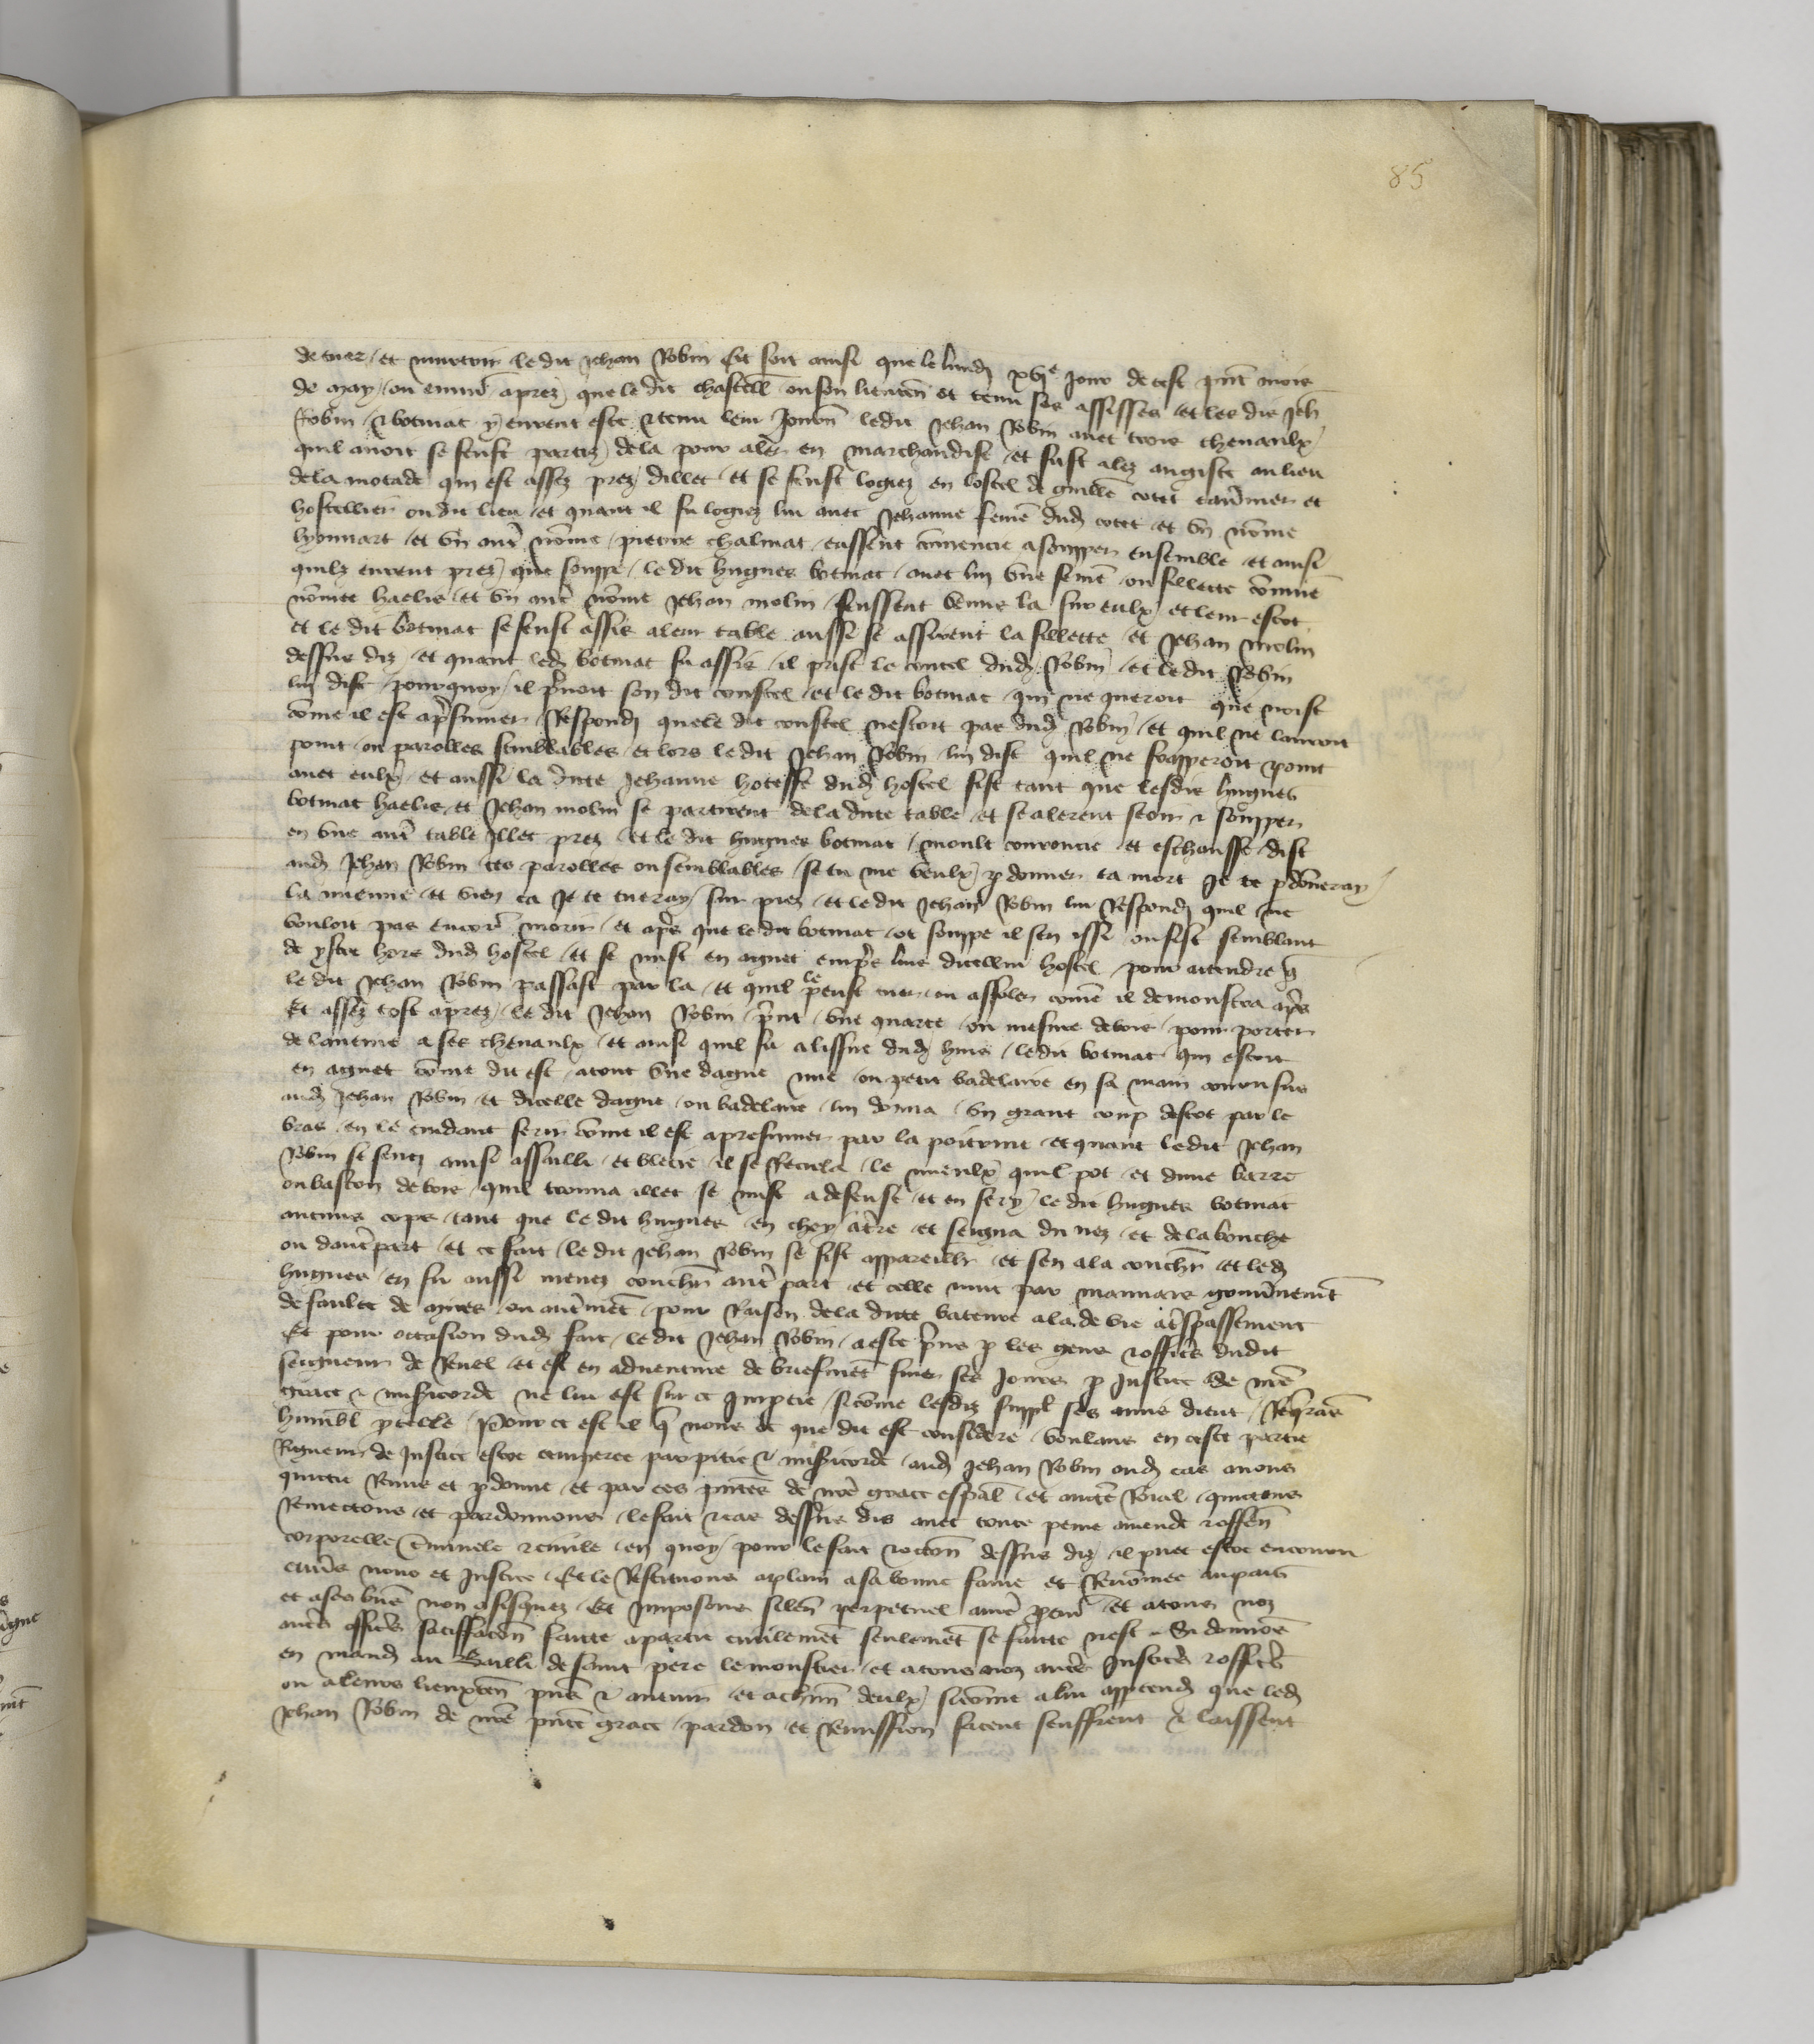 85
de tuer et murtrir le dit Jehan Robin Et soit ainsi que le lundi xvie jour de cest pñt mois
de may ou enuirõ aprez que le dit chastell ou son lieuteñ ot tenu ses assisses et les diz Jeh
Robin botmat y eurent este tenu leur le dit Jehan Robin auec trois cheuaulx
quil auoit se feust partiz dela pour aler en marchandise et fust alez au giste au lieu
dela motade qui est assez prez dillec et se feust logiez en lostel de guille cotet et
hostellier ou dit lieu et quant il fu logiez lui auec Jehanne feme dud cotet et vn nõme
lyonnart et vn aut nõme pierre chalmat eussent cõmencie a soupper ensemble et ainsi
quilz eurent prez que souppe le dit hugues botmat auec lui vne femẽ ou fillette cõmune
nõmee haelis et vn aut nõme Jehan molin feussent venus la sur eulx et leur escot
et le dit botmat se feust assis a leur table aussi se assirent la fillette et Jehan molin
dessus diz et quant led botmat fu assis il prist le coutel dud Robin et le dit Robin
lui dist pourquoy il prnoit son dit coustel et le dit botmat qui ne queroit que noise
cõme il est a presumer Respondi que le dit coustel nestoit pas dud Robin et quil ne lauroit
point ou parolles semblables et lors le dit Jehan Robin lui dist quil ne soupperoit point
auec eulx et aussi la dicte Jehanne hotesse dud hostel fist tant que lesdiz hugues
botmat haelis et Jehan molin se partirent dela dicte table et se alerent seoir soupper
en vne aut table illec prez et le dit hugues botmat moult courrouciez et eschauffe dist
aud Jehan Robin ces parolles ou semblables se tu me veulx p donner ta mort Je te p donneray
la mienne et vien ca Je te tueray sur piez et le dit Jehan Robin lui Respondi quil ne
vouloit pas encor morir et aprs que le dit botmat ot souppe il sen issi ou fist semblant
de yssir hors dud hostel et se mist en aguet empres luis dicellui hostel pour attendre q
le dit Jehan Robin passast par la et quil le peust tuer ou affoler cõme il demonstra aprs
Et assez tost aprez le dit Jehan Robin print vne quarte ou mesure de bois pour porter
de lauenne a ses cheuaulx et ainsi quil fu a lissue dud huis le dit botmat qui estoit
en aguet cõme dit est atout vne dague nue ou petit badelaire en sa main couru sus
aud Jehan Robin et dicelle dague ou badelaire lui donna vn grant coup destoc par le
bras en le cuidant ferir cõme il est a presumer par la poitrine et quant le dit Jehan
Robin se senti ainsi assailli et blecie il se recula le mieulx quil pot et dune barre
ou baston de bois quil trouua illec se mist a defense et en fery le dit hugues botmat
aucuns cops tant que le dit hugues en chey a tre et seigna du nez et dela bouche
ou daut part et ce fait le dit Jehan Robin se fist appareillr et sen ala couchr et led
hugues en fu aussi menez couchr aut part et celle nuit par mauuais gouunemt
defaulte de mires ou autremt pour Raison dela dicte bateure ala de vie a trspassement
Et pour occasion dud fait le dit Jehan Robin a este prns p les gens officrs dudit
seigneur de Reuel et est en aduenture de briefmet finer ses Jours p Justice se nre
grace misicorde ne lui est sur ce Impartie si cõme lesdiz suppl ses amis dient Requerans
humbl p icelle Pour ce est il q nous ce que dit est considere voulans en ceste partie
Rigueur de Justice estre temperee par pitie misicorde aud Jehan Robin oud cas auons
quictie Remis et p donne et par ces pntes de nre grace espal et aucte Roial quictons
Remectons et pardonnons le fait cas dessus dis auec toute peine amende offen
corporelle criminele ciuile en quoy pour le fait occon dessus diz il puet estre encouru
enuers nous et Justice Et le Restituons aplain a sa bonne fame et Renomee au pais
et a ses biens non confisquez Et Imposons silen perpetuel a nre pcur et a tous noz
autrs officrs satisfacon faicte a partie ciuilemt seulemt se faicte nest Si donnons
en mand au Bailli de saint pere le monstier et a tous noz autrs Justicrs officrs
ou a leurs lieuxten pns auenir et a chun deulx si cõme a lui apptend que led
Jehan Robin de nre pnte grace pardon et Remission facent seuffrent laissent